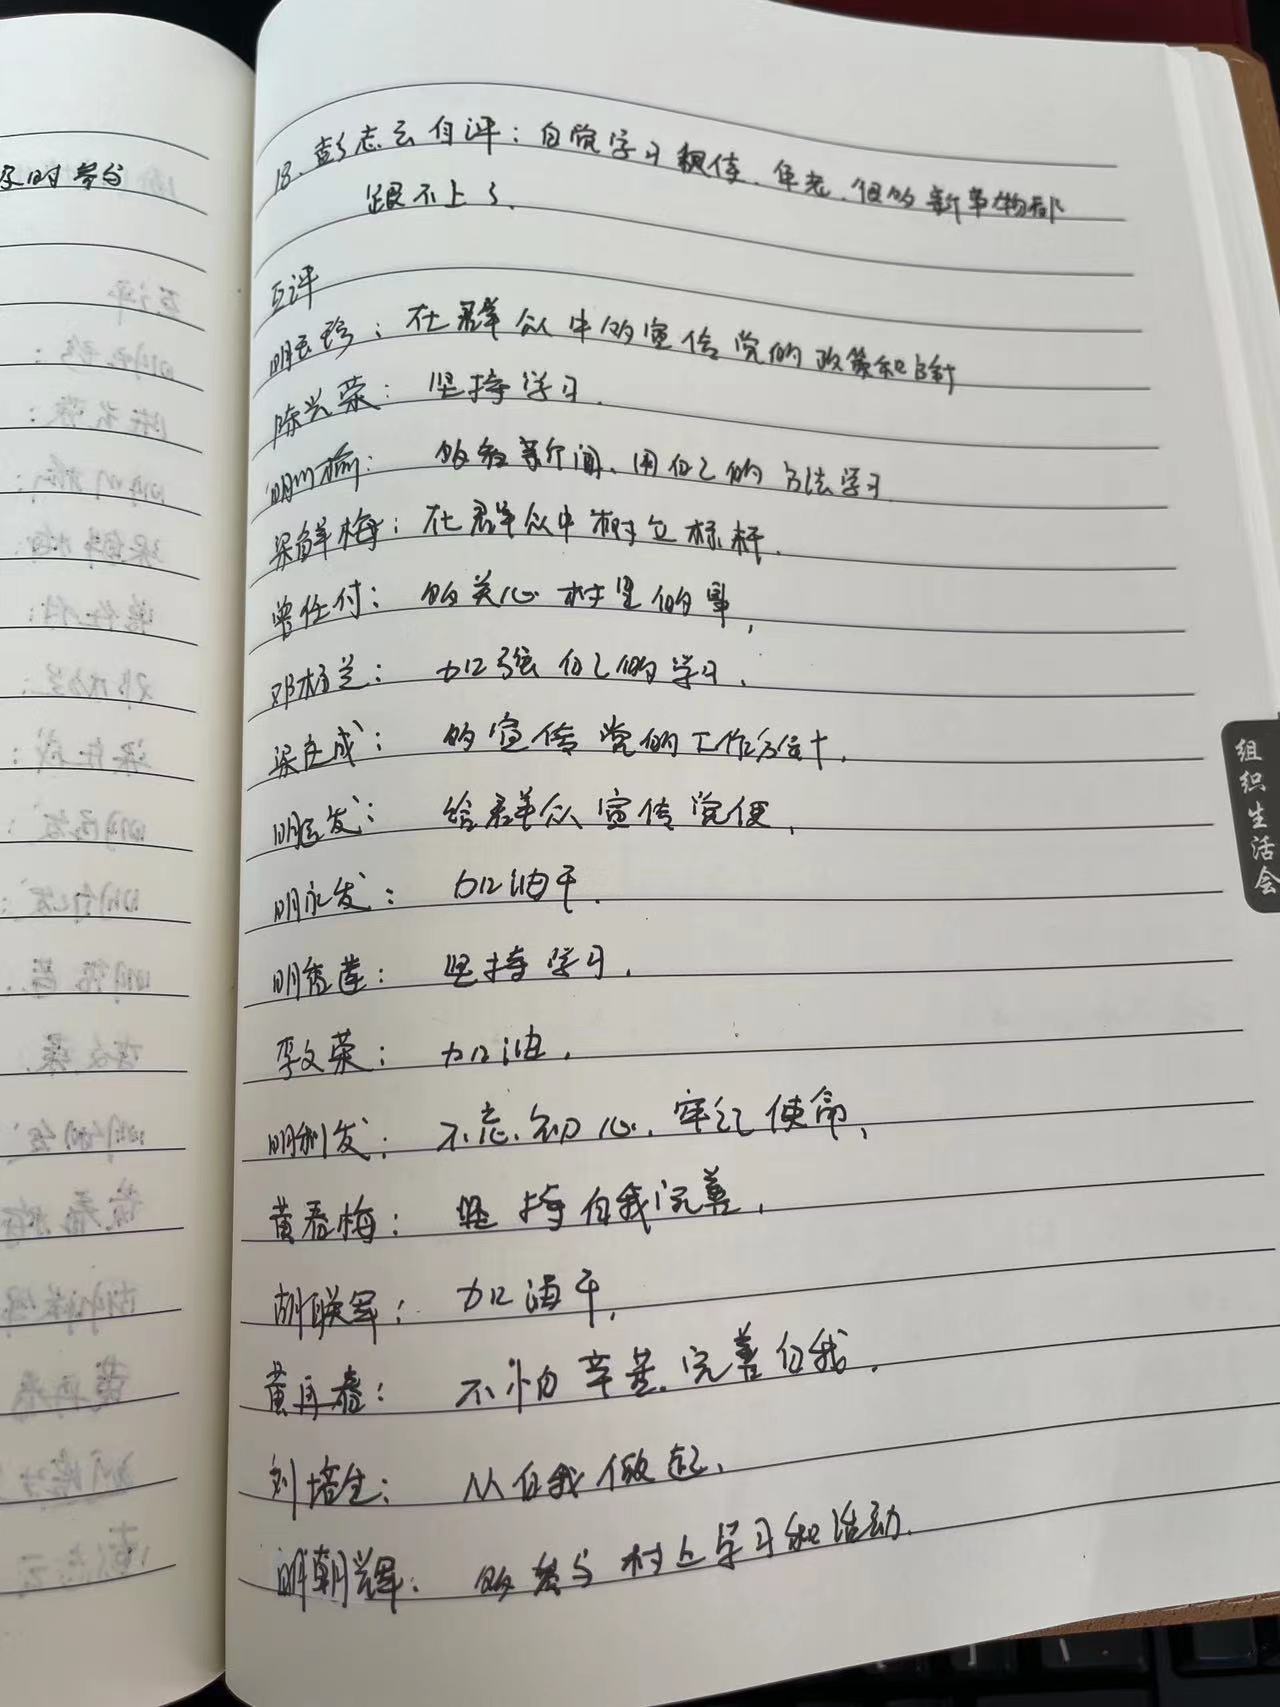 及时参与
18、彭志云自评：自觉学习 年老、但的新事物都
跟不上了、
互评
明云珍：在群众中的宣传党的政策和方针
陈兴荣：坚持学习、
明川榆：的看新闻、用自己的方法学习
梁鲜梅：在群众中树立标杆、
曾任付：的关心村里的事、
邓树兰：加强自己的学习、
梁正成：的宣传党的工作方针、
明发：给群众宣传党
明永发：加油干、
明秀莲：坚持学习、
李文荣：加油、
明利发：不忘初心、牢记使命、
黄春梅：坚持自我完善、
胡联军：加油干、
黄再春：不怕辛苦、完善自我、
刘培生：从自我做起、
明朝辉：的参与村上学习和活动、
组织生活会